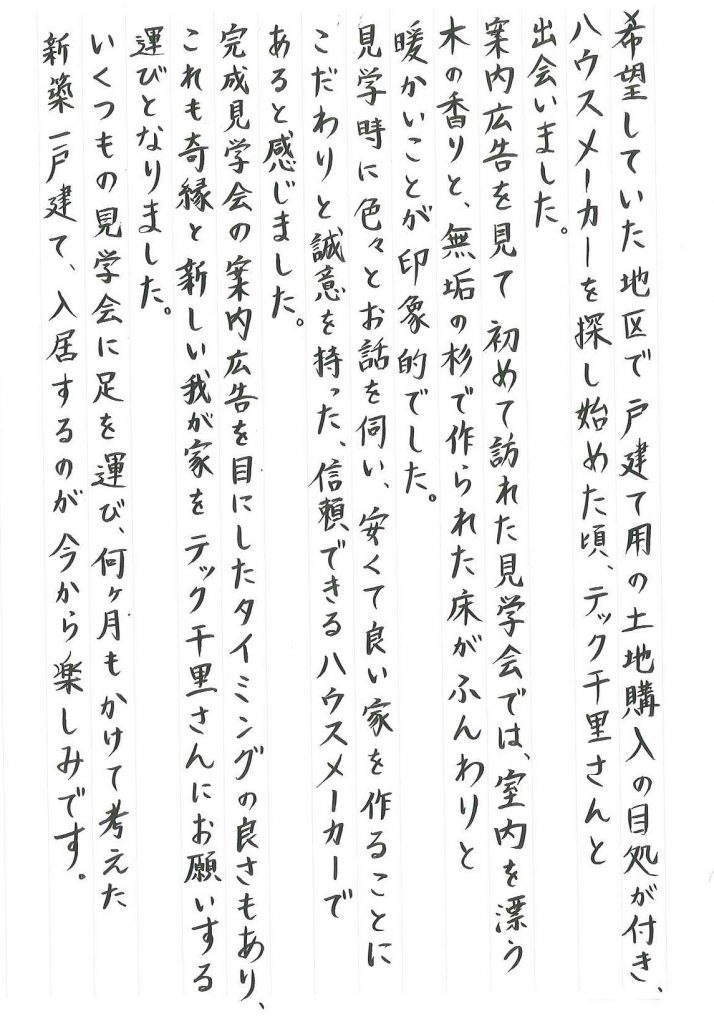 希望していた地区で戸建て用の土地購入の目処が付き、
ハウスメーカーを探し始めた頃、テック千里さんと
出会いました。
案内広告を見て初めて訪れた見学会では、室内を漂う
木の香りと、無垢の杉で作られた床がふんわりと
暖かいことが印象的でした。
見学時に色々とお話を伺い、安くて良い家を作ることに
こだわりと誠意を持った、信頼できるハウスメーカーで
あると感じました。
完成見学会の案内広告を目にしたタイミングの良さもあり、
これも奇縁と新しい我が家をテック千里さんにお願いする
運びとなりました。
いくつもの見学会に足を運び、何ヶ月もかけて考えた
新築一戸建て、入居するのが今から楽しみです。